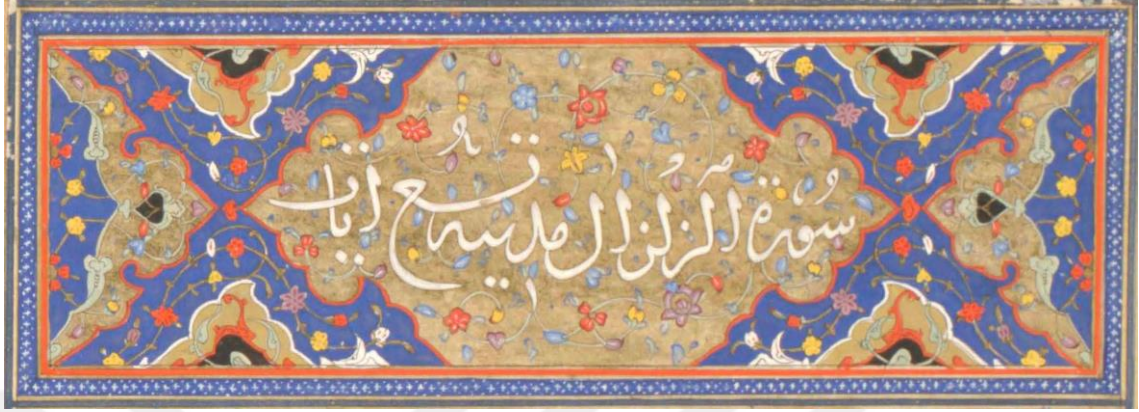 سورة الزلزال مدنيه تسع ايات